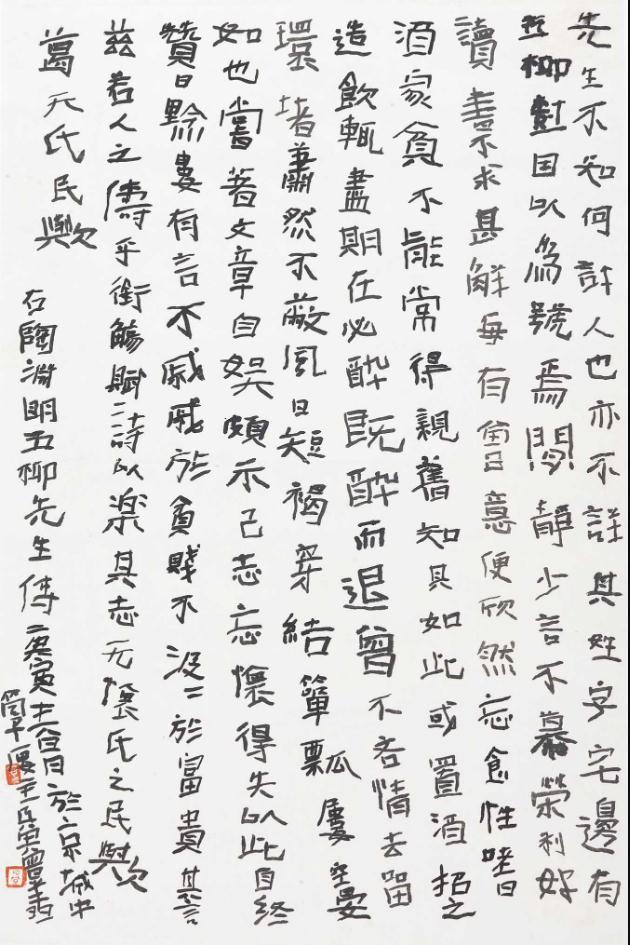 先生不知何許人也亦不詳其姓字宅邊有
五柳樹因以為號焉閑靜少言不慕榮利好
讀書不求甚解每有會意便欣然忘食性嗜
酒家貧不能常得親舊知其如此或置酒招之
造飲輒盡期在必醉既醉而退曾不吝情去留
環堵蕭然不蔽風日短褐穿結簞瓢屢空晏
如也嘗著文章自娛頗示己志忘懷得失以此自終
贊曰黔婁有言不戚戚於貧賤不汲二於富貴其言
茲若人之儔乎銜觴賦詩以樂其志无懷氏之民歟
葛天氏民歟
右陶淵明五柳先生傳庚寅 日於京城中